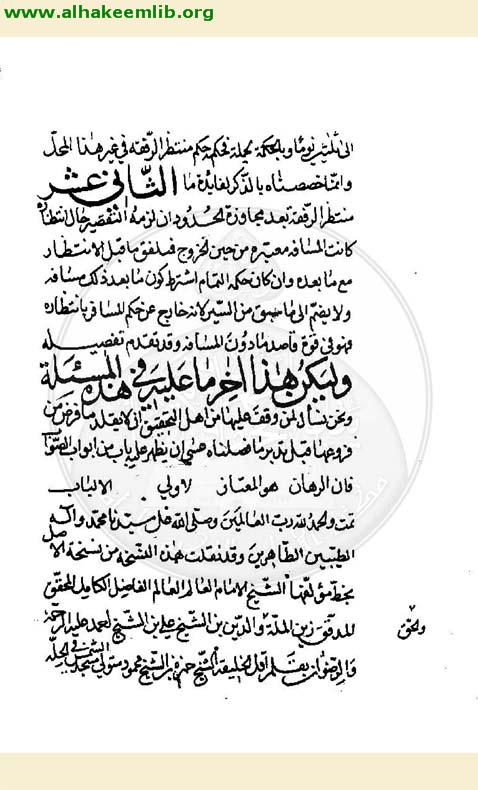 www.alhakeemlib.org
الى ثلثين يوما وبالجملة فحكمه حكم منتظر الرفقة في غير هذا المحل
وانما خصصناه بالذكر لفايدة ما الثاني عشر
منتظر الرفقة بعد مجاوزة الحدود ان لزمه التقصير حال انتظاره
كانت المسافة معتبرة من حين الخروج فيلفق ما قبل الانتظار
مع ما بعده وان كان حكمه التمام اشترط كون ما بعد ذلك مسافة
ولا يضم الى ما سبق من السير لانه خارج عن حكم المسافر بانتظاره
فهو في قوة قاصد ما دون المسافة وقد تقدم تفصيله
وليكن هذا اخر ما عليه في هذه المسئلة
ونحن نسال لمن وقف عليها من اهل التحقيق ان لا يقلد ما فرض من
فروعها قبل تدبر ما فصلناه عسى ان يظهر عليه باب من ابواب الصواب
فان الرهان هو المعتاز لاولي الالباب
تمت والحمد لله رب العالمين وصلى الله على سيدنا محمد واله
الطيبين الطاهرين وقد نقلت هذه النسخة من نسخة الاصل
بخط مؤلفها الشيخ الامام العالم العالم الفاضل الكامل المحقق
المدقق زين الملة والدين بن الشيخ علي بن الشيخ احمد عليه الرحمة
والرضوان بقلم اقل الخليقة الشيخ حمزة بن الشيخ محمود
والحق